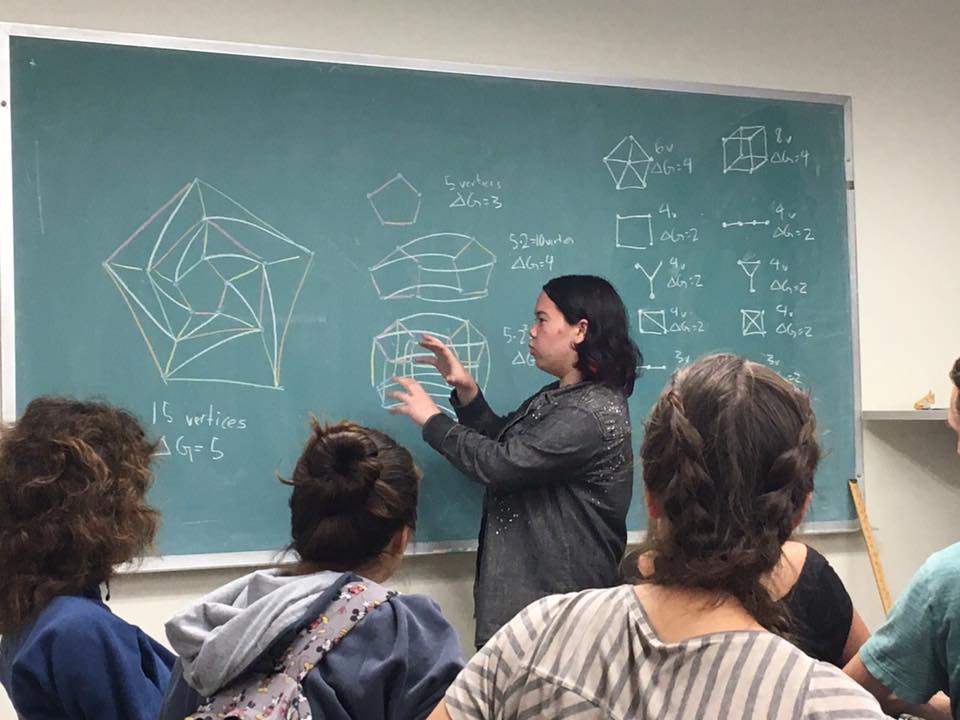 15 vertices
ΔG=5
5 vertices
ΔG=3
5·2=10 vertices
ΔG=4
5·2
6v
ΔG=4
8v
ΔG=4
4v
ΔG=2
4v
ΔG=2
4v
ΔG=2
4v
ΔG=2
4v
ΔG=2
4v
ΔG=2
3v
3v